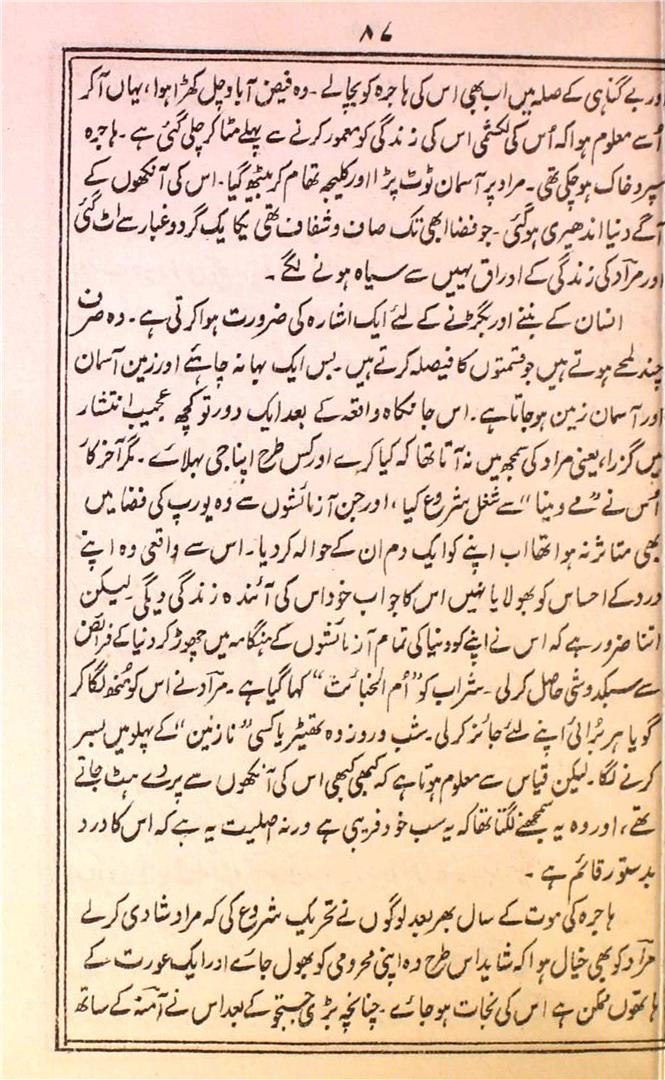 ۸۷
ور بے گناہی کے صلہ میں اب بھی اس کی ہاجرہ کو بچالے۔ وہ فیض آباد چل کھڑا ہوا، یہاں آکر
اُسے معلوم ہوا کہ اُس کی لکشمی اس کی زندگی کو معمور کرنے سے پہلے مٹا کر چلی گئی ہے۔ ہاجرہ
سپرد خاک ہوچکی تھی۔ مراد پر آسمان ٹوٹ پڑا اور کلیجہ تھام کر بیٹھ گیا۔ اس کی آنکھوں کے
آگے دنیا اندھیری ہوگئی۔ جو فضا ابھی تک صاف و شفاف تھی یکایک گرد و غبار سے اٹ گئی
اور مرآد کی زندگی کے اوراق یہیں سے سیاہ ہونے لگے۔
انسان کے بننے اور بگڑنے کے لئے ایک اشارہ کی ضرورت ہوا کرتی ہے۔ وہ صرف
چند لمحے ہوتے ہیں جو قسمتوں کا فیصلہ کرتے ہیں۔ بس ایک بہانہ چاہئے اور زمین آسمان
اور آسمان زمین ہوجاتا ہے۔ اس جانکاہ واقعہ کے بعد ایک دور تو کچھ عجیب انتشار
میں گزرا، یعنی مراد کی سمجھ میں نہ آتا تھا کہ کیا کرے اور کس طرح اپنا جی بہلائے۔ مگر آخر کار
اُس نے ”مے و مینا“ سے شغل شروع کیا، اور جن آزمائشوں سے وہ یورپ کی فضا میں
بھی متاثر نہ ہوا تھا اب اپنے کو ایک دم ان کے حوالہ کردیا۔ اس سے واقعی وہ اپنے
درد کے احساس کو بھولا یا نہیں اس کا جواب خود اس کی آئندہ زندگی دیگی لیکن
اتنا ضرور ہے کہ اس نے اپنے کو دنیا کی تمام آزمائشوں کے ہنگامہ میں چھوڑ کر دنیا کے فرائض
سے سبکدوشی حاصل کرلی۔ شراب کو ”اُم الخبائث“ کہا گیا ہے۔ مرآد نے اس کو مُنھ لگا کر
گویا ہر بُرائی اپنے لئے جائز کرلی۔ شب و روز وہ تھیٹر یا کسی ”نازنین“ کے پہلو میں بسر
کرنے لگا۔ لیکن قیاس سے معلوم ہوتا ہے کہ کبھی کبھی اس کی آنکھوں سے پردے ہٹ جاتے
تھے، اور وہ یہ سمجھنے لگتا تھا کہ یہ سب خود فریبی ہے ورنہ اصلیت یہ ہے کہ اس کا درد
بدستور قائم ہے۔
ہاجرہ کی موت کے سال بھر بعد لوگوں نے تحریک شروع کی کہ مراد شادی کرلے
مرآد کو بھی خیال ہوا کہ شاید اس طرح وہ اپنی محرومی کو بھول جائے اور ایک عورت کے
ہاتھوں ممکن ہے اس کی نجات ہوجائے۔ چنانچہ بڑی جستجو کے بعد اس نے آمنہ کے ساتھ